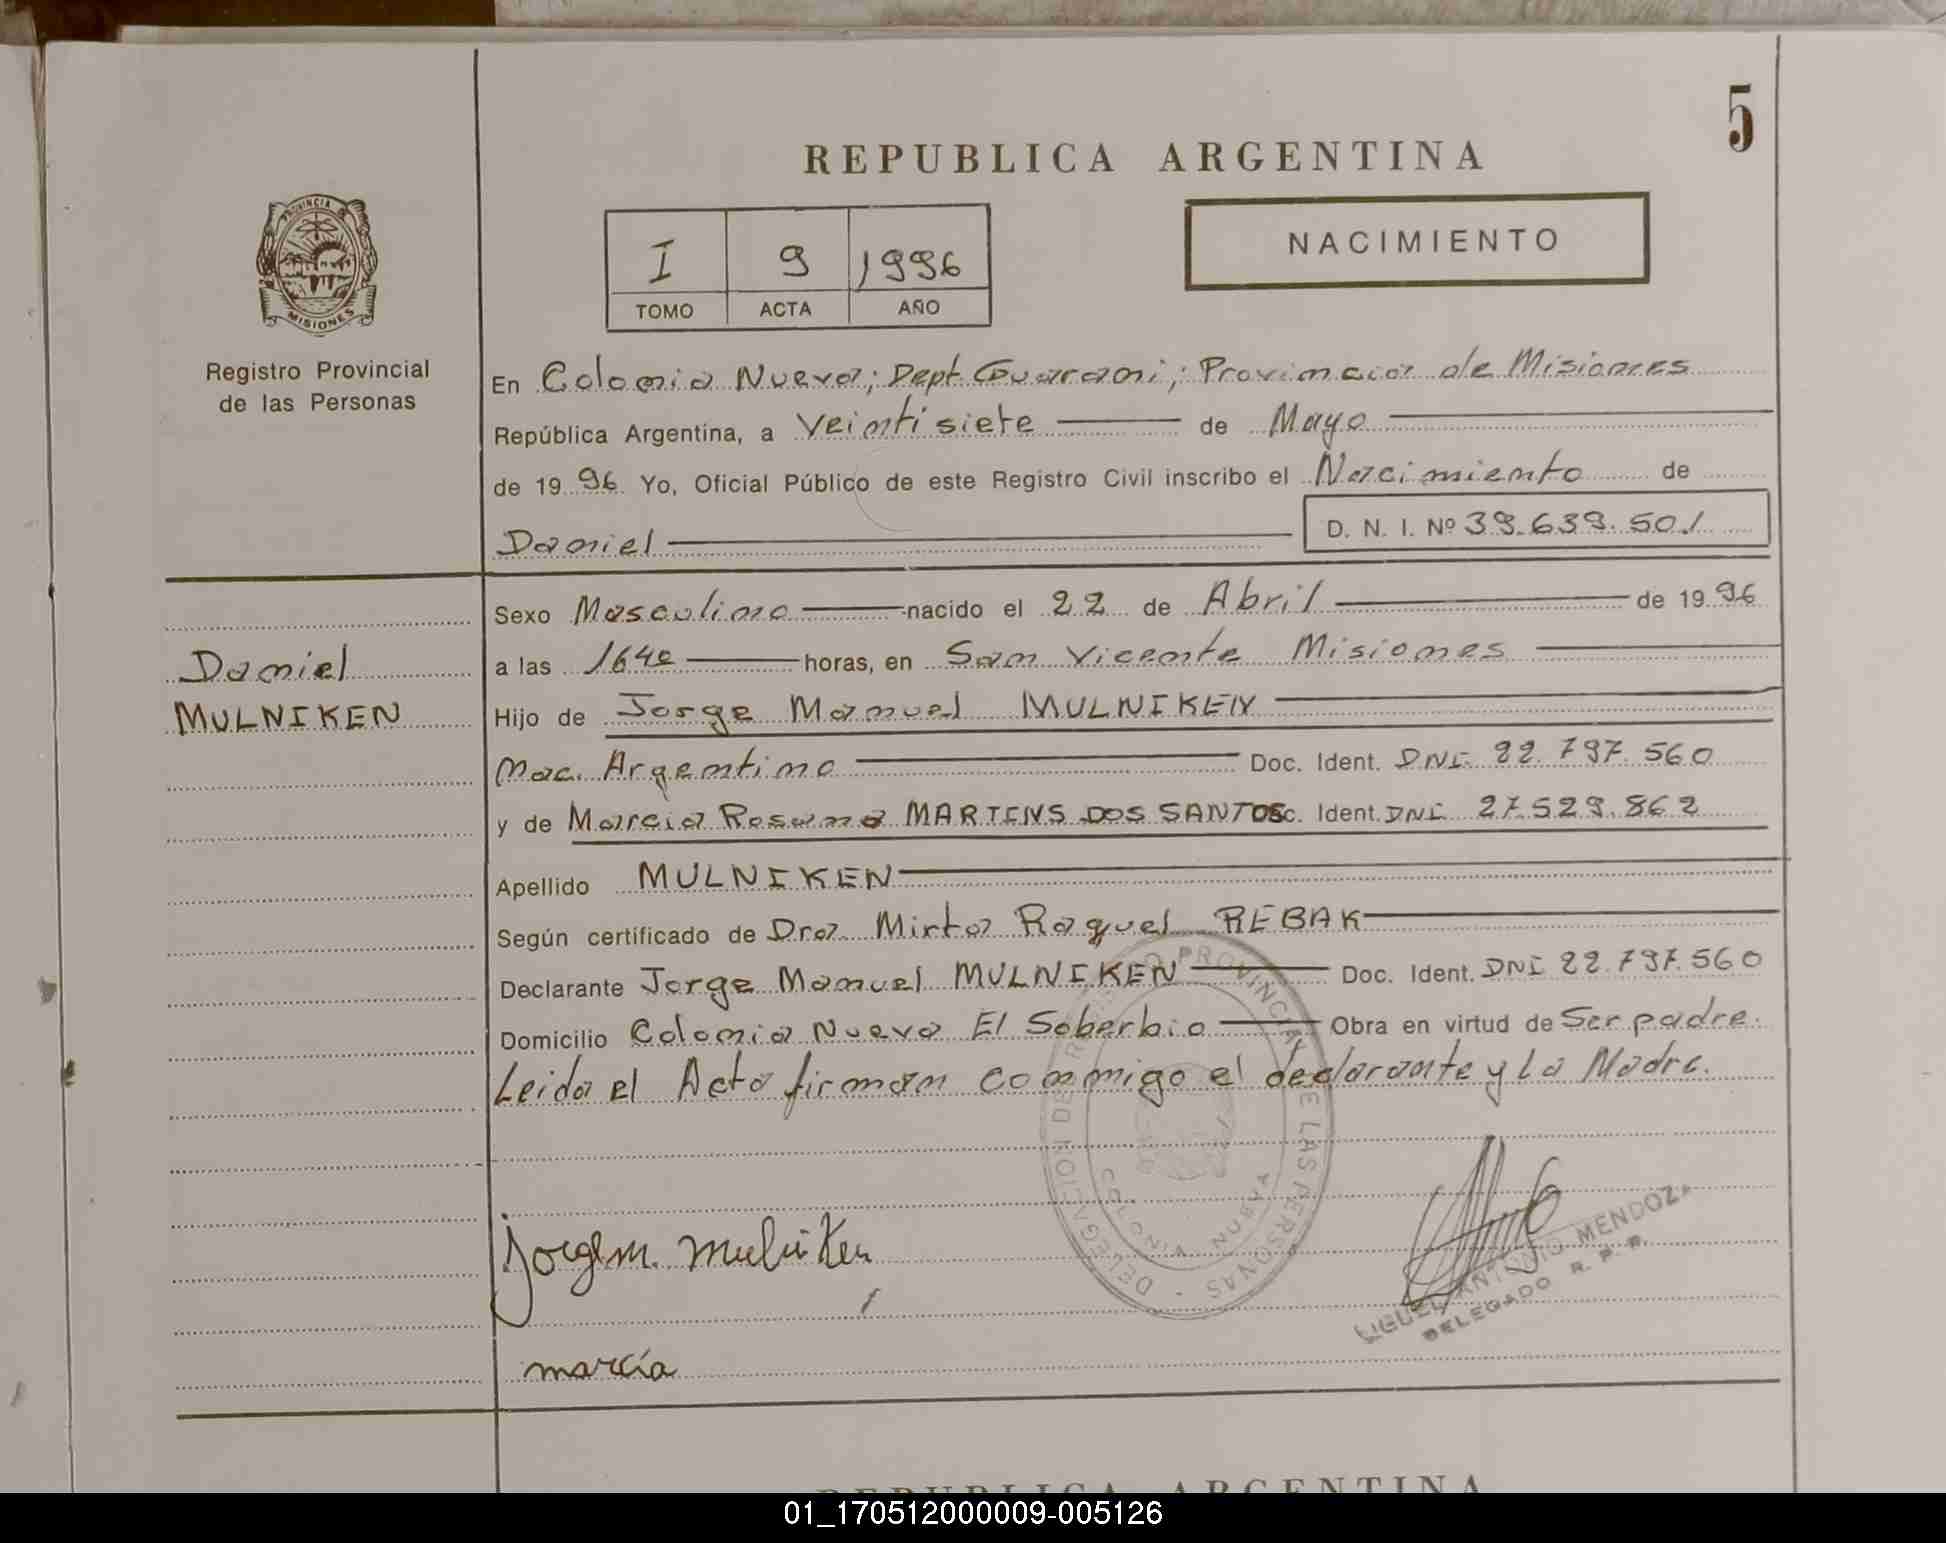 5
REPUBLICA ARGENTINA
PROVINCIA DE
MISIONES
Registro Provincial
de las Personas
I 9 1996
TOMO ACTA AÑO
NACIMIENTO
En Colonia Nueva; Dept. Guarani; Provincia de Misiones
República Argentina, a Veintisiete de Mayo
de 1996 Yo, Oficial Público de este Registro Civil inscribo el Nacimiento de
Daniel D. N. I. Nº 39.639.501
Daniel
MULNIKEN
Sexo Masculino nacido el 22 de Abril de 1996
a las 1640 horas, en San Vicente Misiones
Hijo de Jorge Manuel MULNIKEN
Nac. Argentino Doc. Ident. DNI 22.797.560
y de Marcia Rosana MARTENS DOS SANTOS c. Ident. DNI 27.529.862
Apellido MULNIKEN
Según certificado de Dra. Mirta Raquel REBAK
Declarante Jorge Manuel MULNIKEN Doc. Ident. DNI 22.797.560
Domicilio Colonia Nueva El Soberbio Obra en virtud de Ser padre.
Leida el Acta firman conmigo el declarante y la Madre.
DELEGACION DE REGISTRO PROVINCIAL DE LAS PERSONAS
COLONIA NUEVA
Jorge m. mulniken
IGUEL ANTONIO MENDOZA
DELEGADO R. P. P.
marcía
REPUBLICA ARGENTINA
01_170512000009-005126